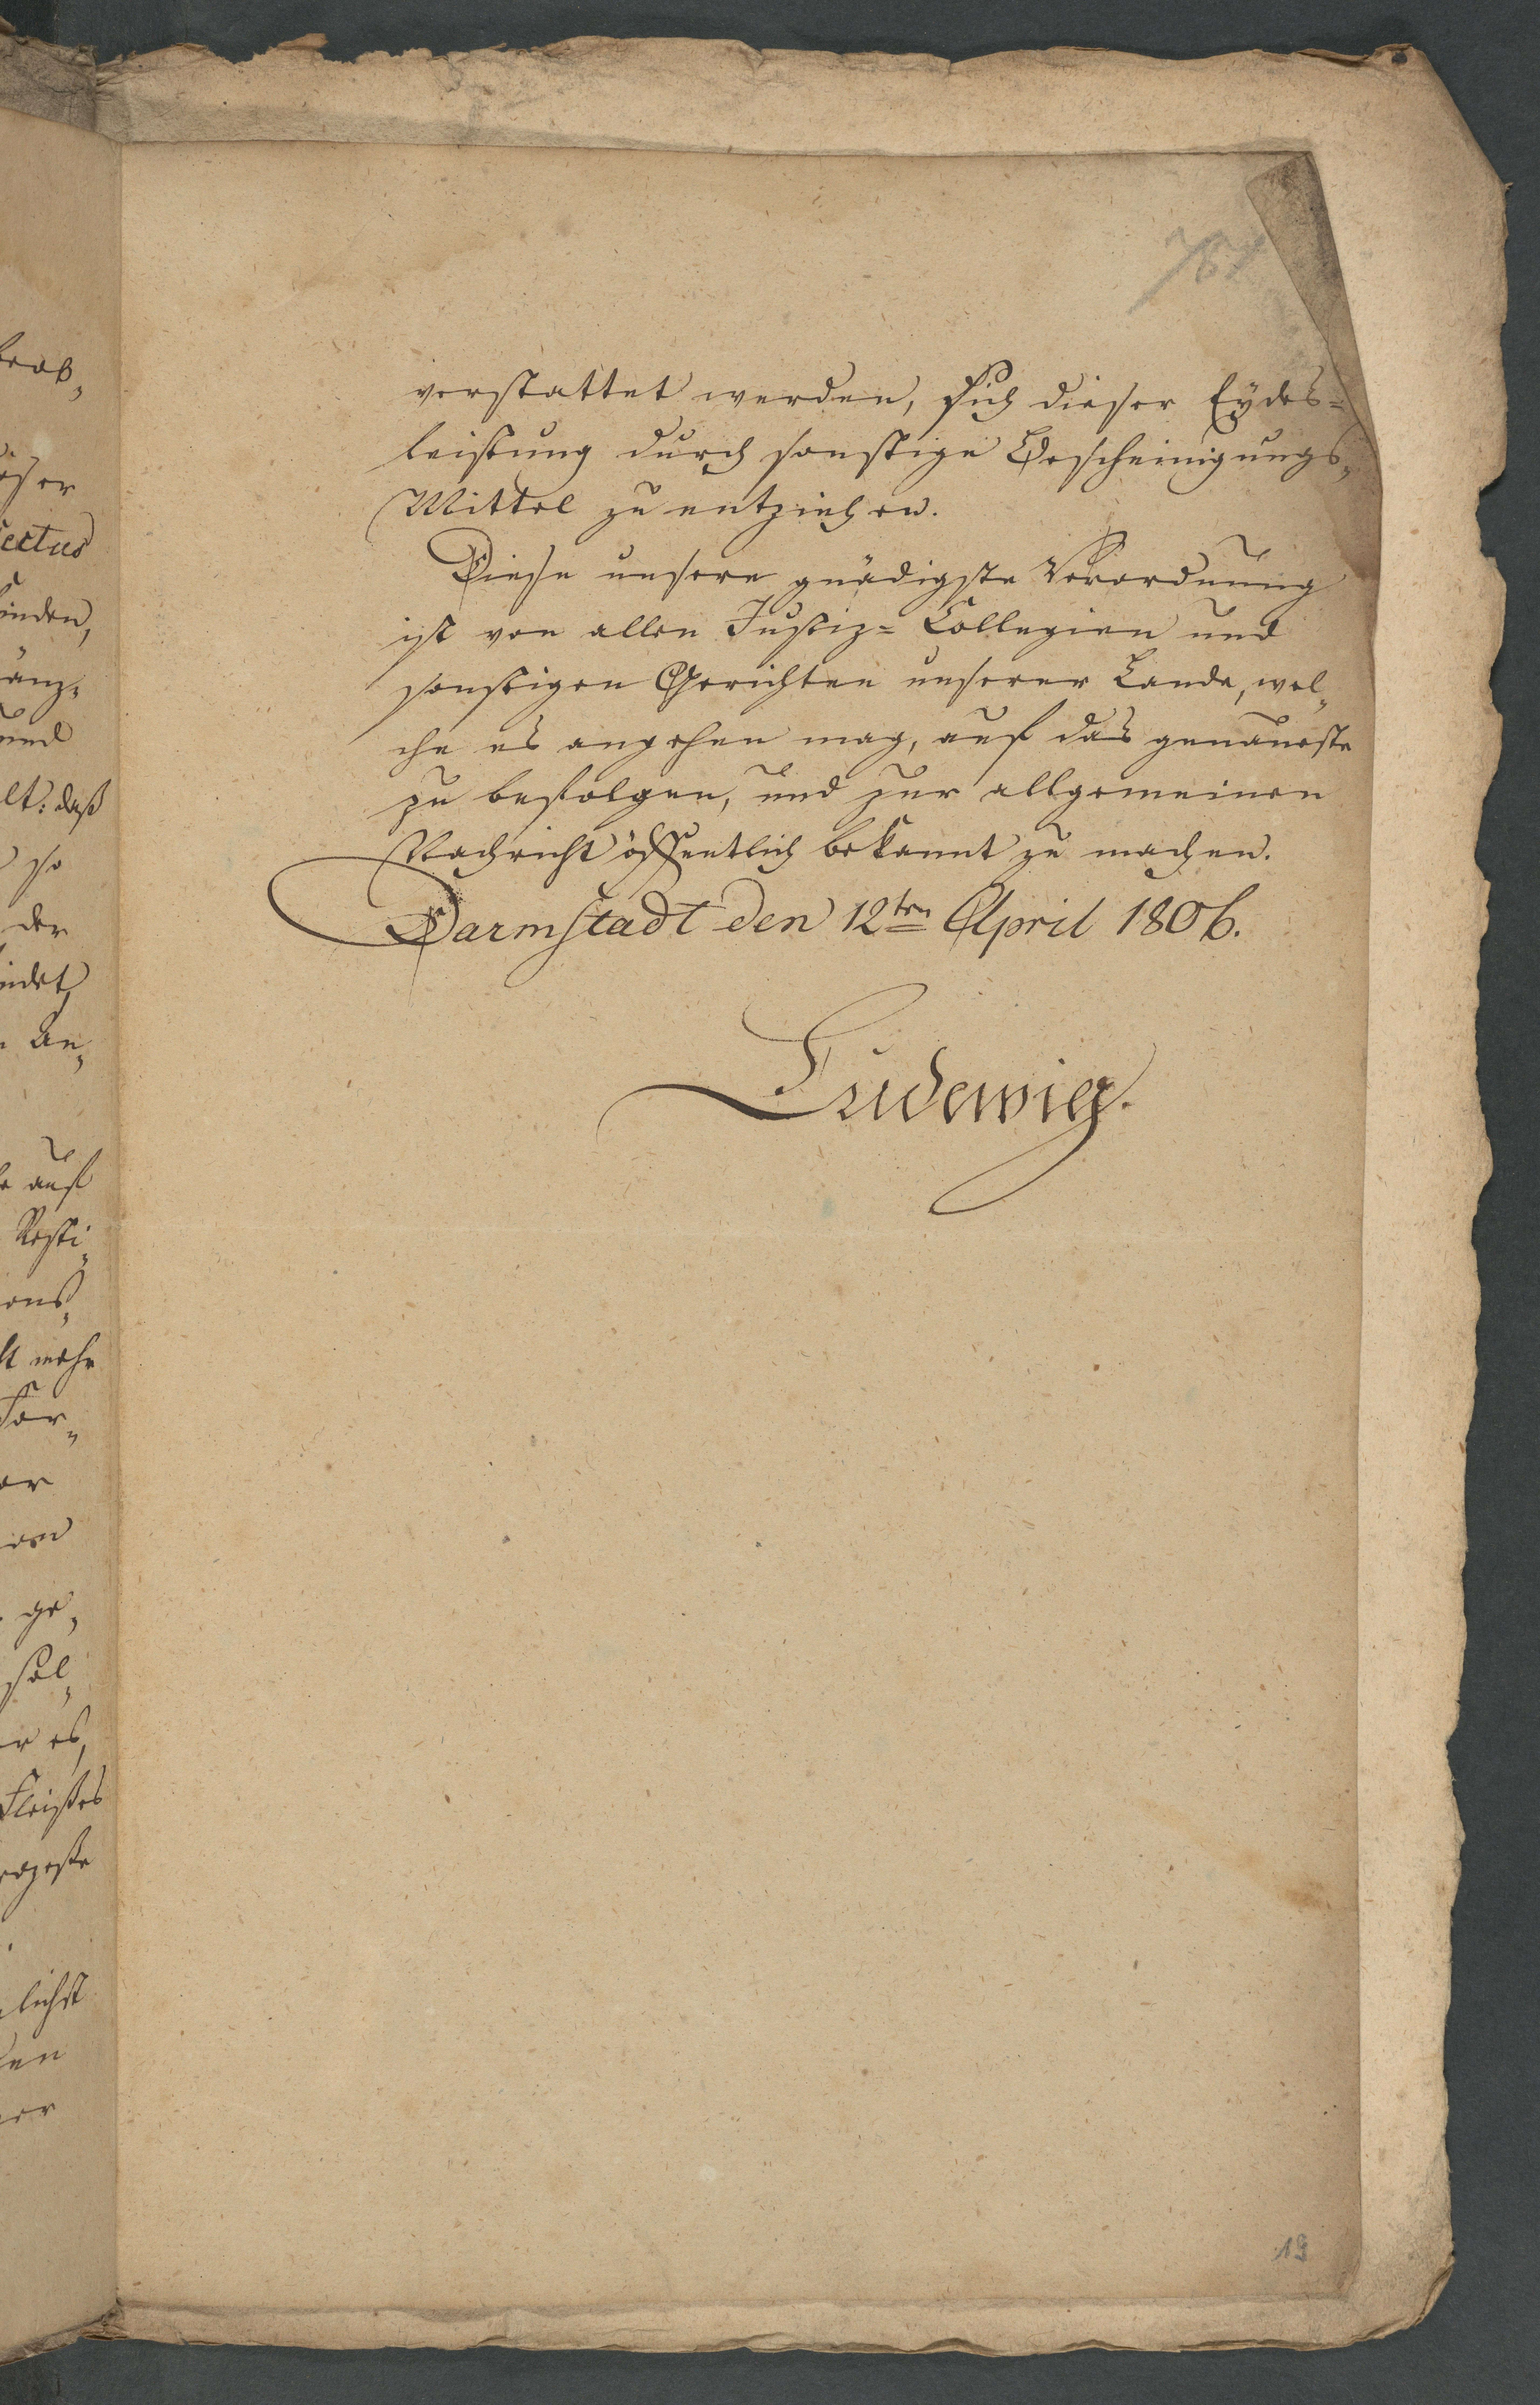 verstattet werden, sich dieser Eydes=
leistung durch sonstige Bescheinigungs„
Mittel zu entziehen.
Diese unsere gnädigste Verordnung
ist von allen Justiz= Collegien und
sonstigen Gerichten unserer Lande, wel„
che es angehen mag, auf das genaueste
zu befolgen, und zur allgemeinen
Nachricht öffentlich bekannt zu machen.
Darmstadt den 12ten April 1806.
Ludewig.
19
ectus
inden,
änz„
und
lt: daß
so
der
indet,
An„
auf
Resti„
mehr
For„
ge„
sol„
er es,
Fleißes
lichst